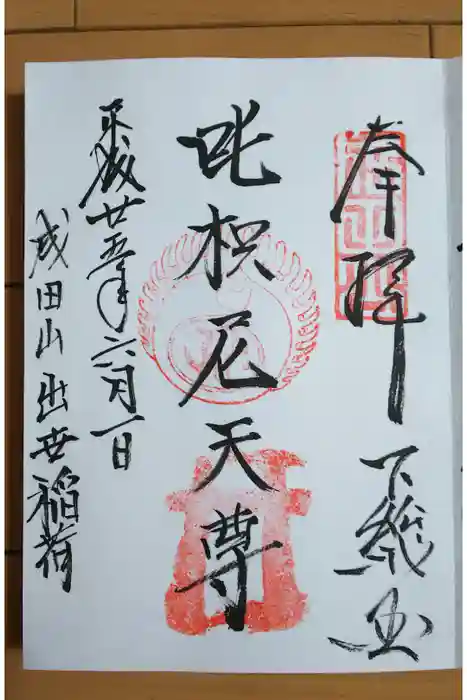 奉拝 下総国
吒枳尼天尊
平成廿五年六月一日
成田山出世稲荷